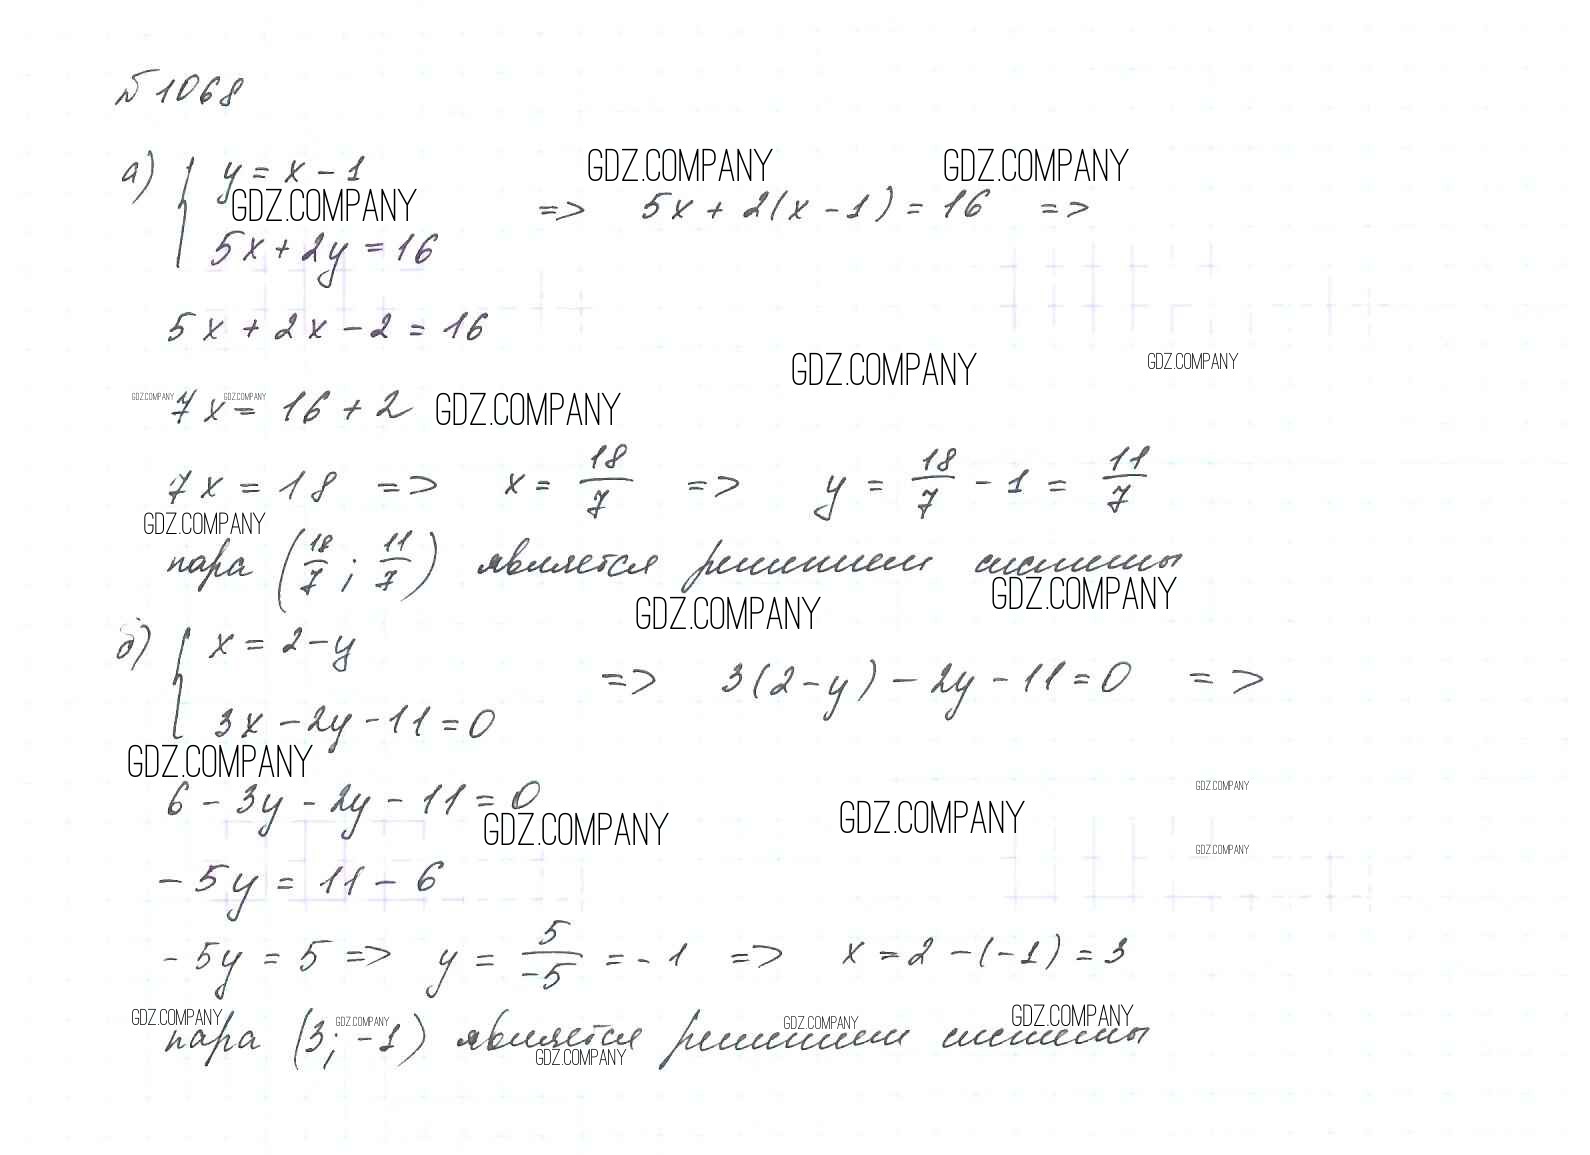 № 1068
а) { y = x - 1
GDZ.COMPANY GDZ.COMPANY GDZ.COMPANY
5x + 2y = 16 => 5x + 2(x - 1) = 16 =>
5x + 2x - 2 = 16
GDZ.COMPANY GDZ.COMPANY
GDZ.COMPANY GDZ.COMPANY 7x = 16 + 2 GDZ.COMPANY
7x = 18 => x = 18/7 => y = 18/7 - 1 = 11/7
GDZ.COMPANY
пара (18/7; 11/7) является решением системы
GDZ.COMPANY GDZ.COMPANY
б) { x = 2 - y
3x - 2y - 11 = 0 => 3(2 - y) - 2y - 11 = 0 =>
GDZ.COMPANY
6 - 3y - 2y - 11 = 0
GDZ.COMPANY
GDZ.COMPANY GDZ.COMPANY
GDZ.COMPANY
-5y = 11 - 6
-5y = 5 => y = 5/-5 = -1 => x = 2 - (-1) = 3
GDZ.COMPANY GDZ.COMPANY GDZ.COMPANY GDZ.COMPANY
пара (3; -1) является решением системы
GDZ.COMPANY